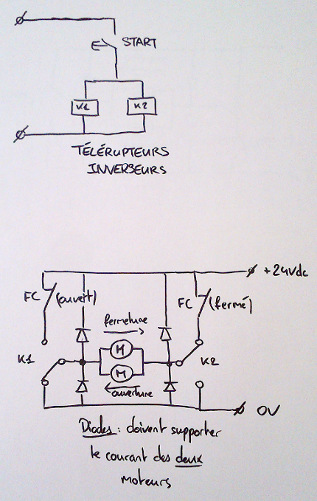 START
K1 K2
TÉLÉRUPTEURS
INVERSEURS
+24Vdc
FC (ouvert) FC (fermé)
fermeture
M
K1 K2
M
ouverture
0V
Diodes : doivent supporter
le courant des deux
moteurs